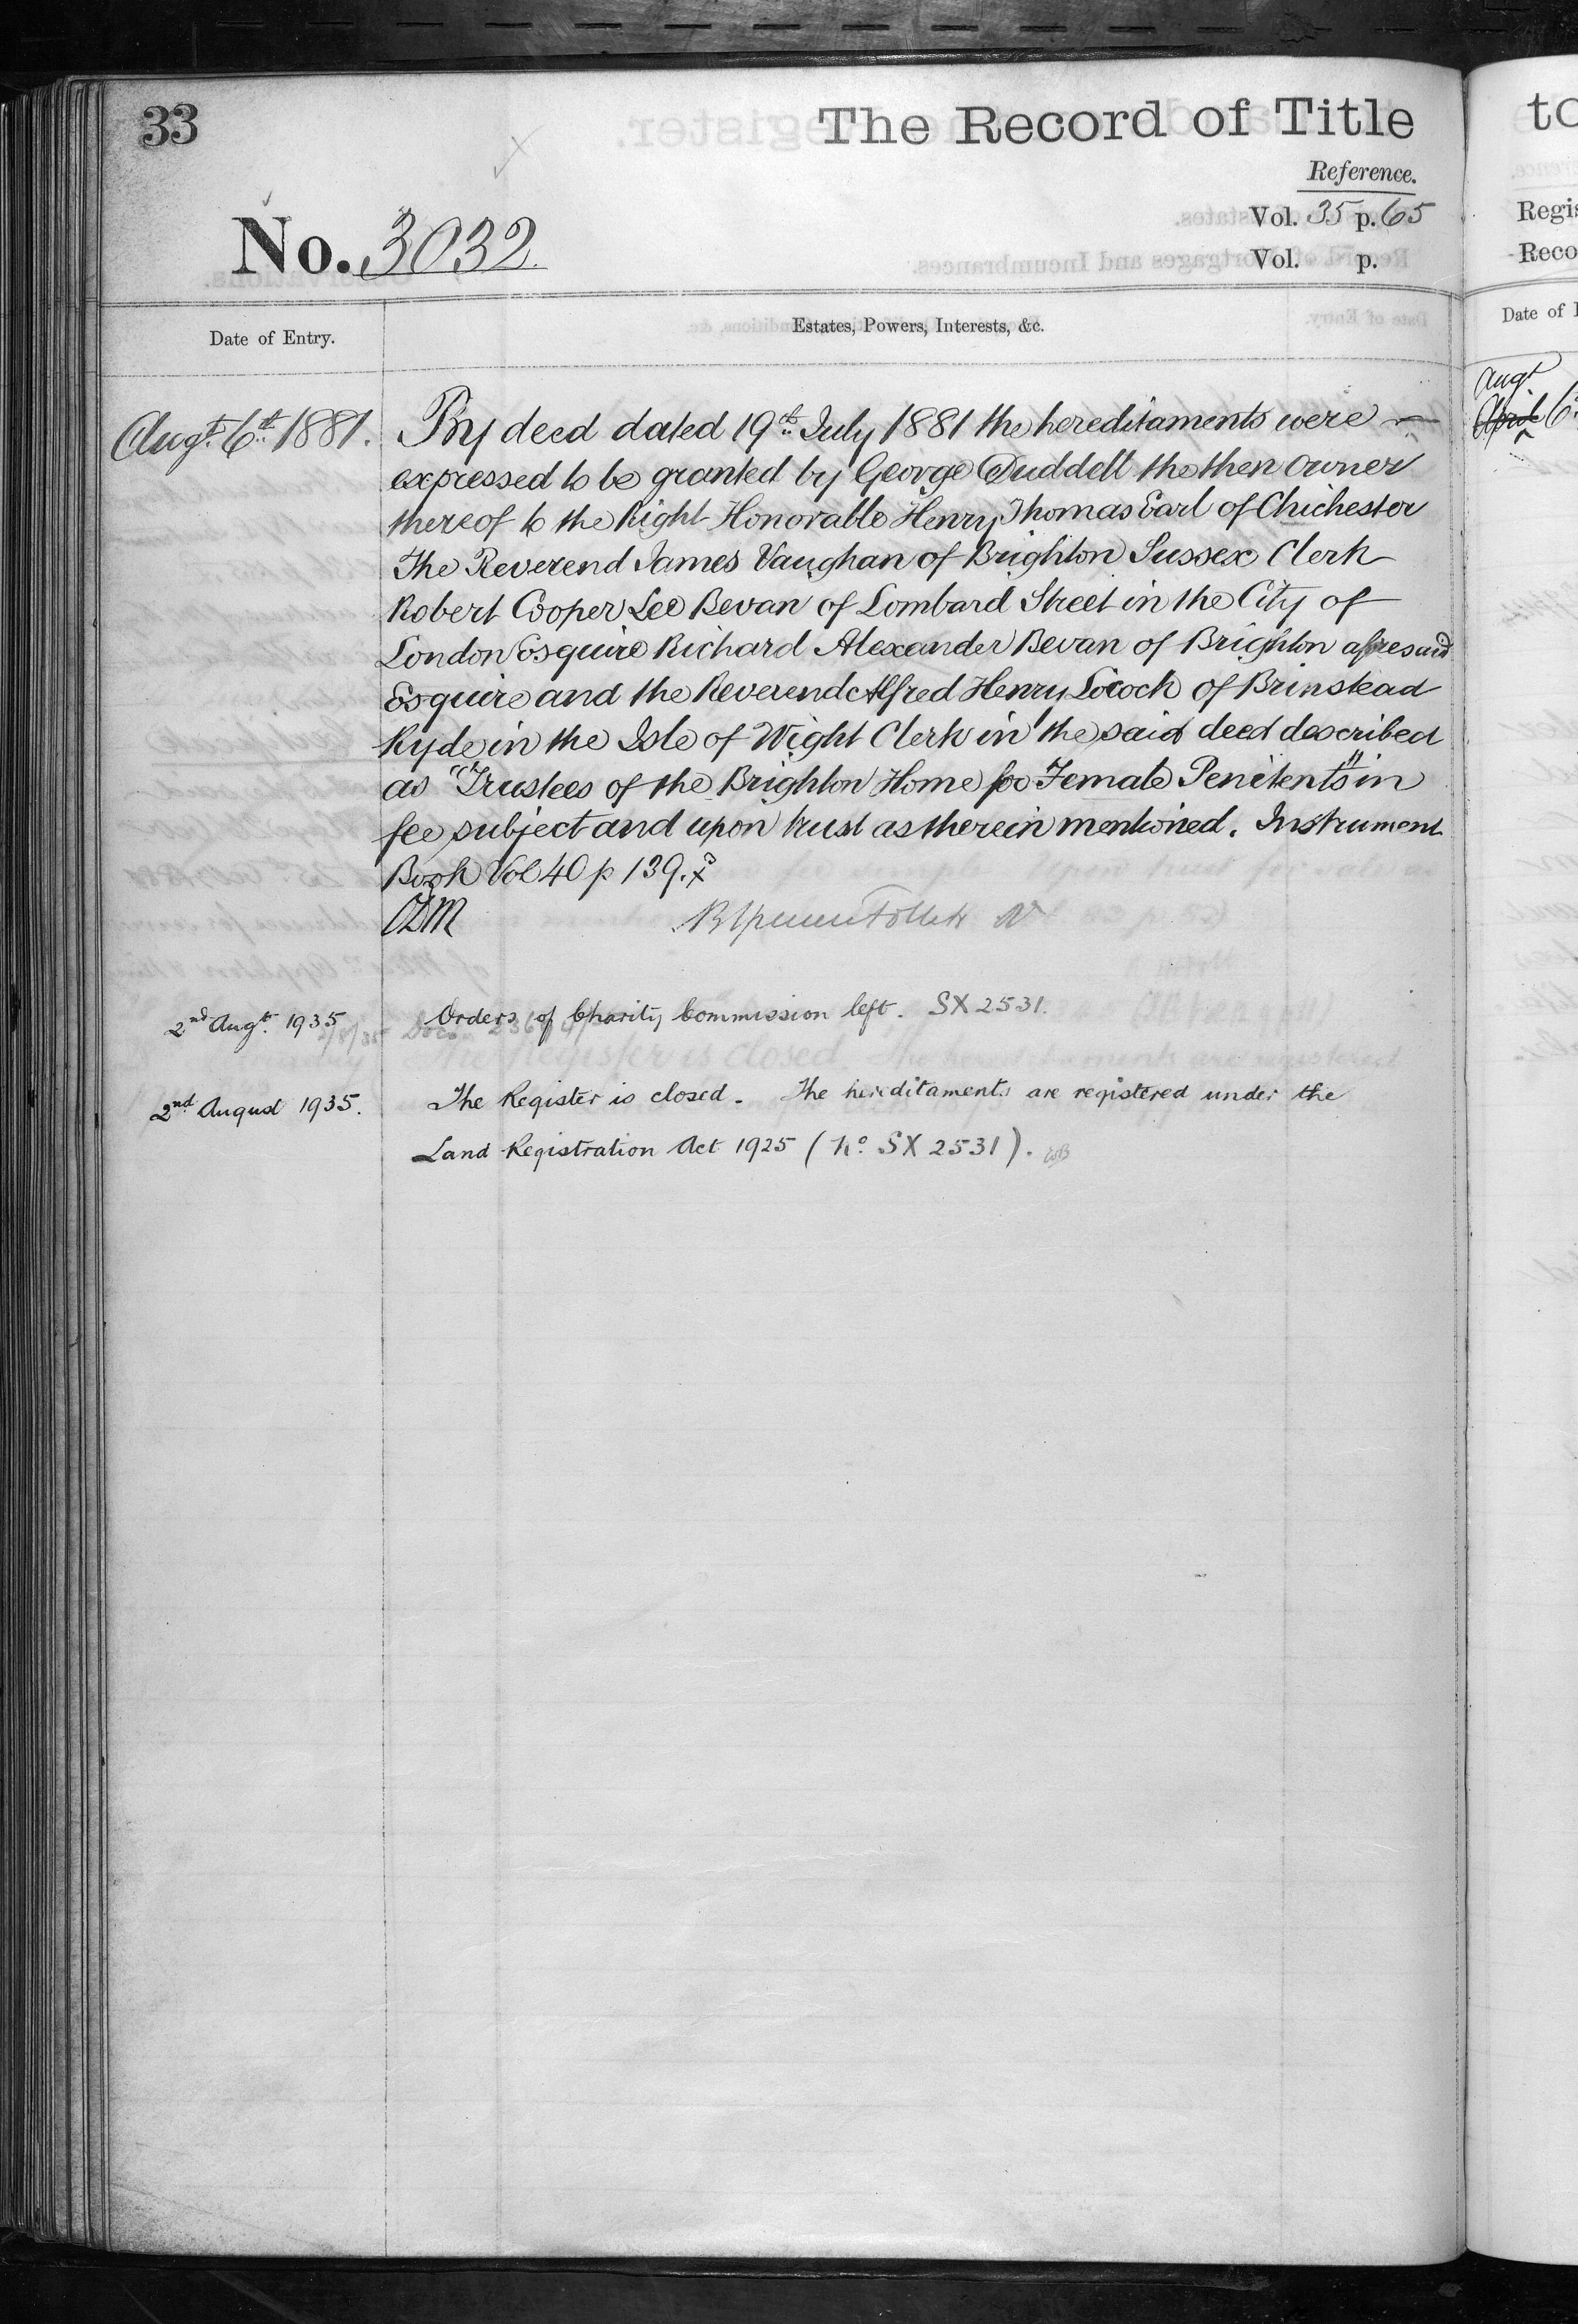 33
The Record of Title
Reference.
No. 3032.
Vol. 35 p. 65
Vol. p.
Date of Entry.
Estates, Powers, Interests, &c.
Augt. 6th 1881.
By deed dated 19th July 1881 the hereditaments were
expressed to be granted by George Duddell the then owner
thereof to the Right Honorable Henry Thomas Earl of Chichester
The Reverend James Vaughan of Brighton Sussex Clerk
Robert Cooper Lee Bevan of Lombard Street in the City of
London Esquire Richard Alexander Bevan of Brighton aforesaid
Esquire and the Reverend Alfred Henry Locock of Brinstead
Ryde in the Isle of Wight Clerk in the said deed described
as "Trustees of the Brighton Home for Female Penitents" in
fee subject and upon trust as therein mentioned. Instrument
Book Vol 40 p 139.
2nd Augt. 1935
Orders of Charity Commission left. SX 2531.
2nd August 1935.
The Register is closed. The hereditaments are registered under the
Land Registration Act 1925 (No. SX 2531).
to
Regis
Reco
Date of
Augt
April 6